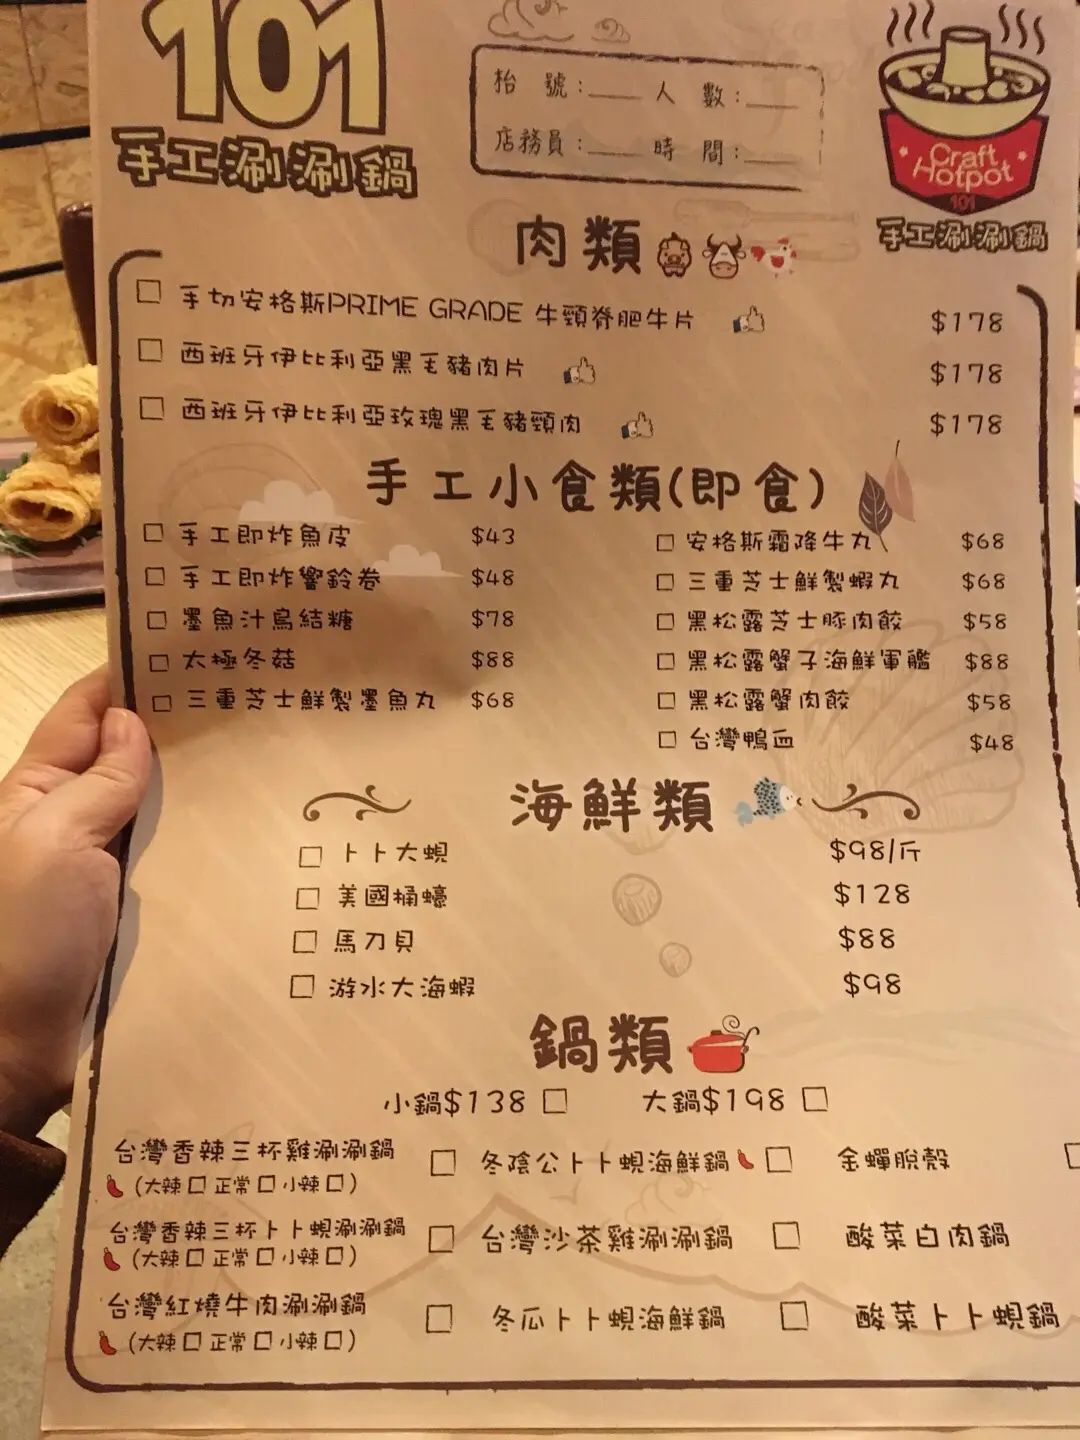 101
手工涮涮鍋
枱 號：____ 人 數：____
店務員：____ 時 間：____
Craft
Hotpot
101
手工涮涮鍋
肉類
□ 手切安格斯PRIME GRADE 牛頸脊肥牛片 $178
□ 西班牙伊比利亞黑毛豬肉片 $178
□ 西班牙伊比利亞玫瑰黑毛豬頸肉 $178
手工小食類(即食)
□ 手工即炸魚皮 $43
□ 手工即炸響鈴卷 $48
□ 墨魚汁鳥結糖 $78
□ 太極冬菇 $88
□ 三重芝士鮮製墨魚丸 $68
□ 安格斯霜降牛丸 $68
□ 三重芝士鮮製蝦丸 $68
□ 黑松露芝士豚肉餃 $58
□ 黑松露蟹子海鮮軍艦 $88
□ 黑松露蟹肉餃 $58
□ 台灣鴨血 $48
海鮮類
□ 卜卜大蜆 $98/斤
□ 美國桶蠔 $128
□ 馬刀貝 $88
□ 游水大海蝦 $98
鍋類
小鍋$138 □ 大鍋$198 □
台灣香辣三杯雞涮涮鍋 □ 冬陰公卜卜蜆海鮮鍋 □ 金蟬脫殼 □
(大辣□ 正常□ 小辣□)
台灣香辣三杯卜卜蜆涮涮鍋 □ 台灣沙茶雞涮涮鍋 □ 酸菜白肉鍋
(大辣□ 正常□ 小辣□)
台灣紅燒牛肉涮涮鍋 □ 冬瓜卜卜蜆海鮮鍋 □ 酸菜卜卜蜆鍋
(大辣□ 正常□ 小辣□)